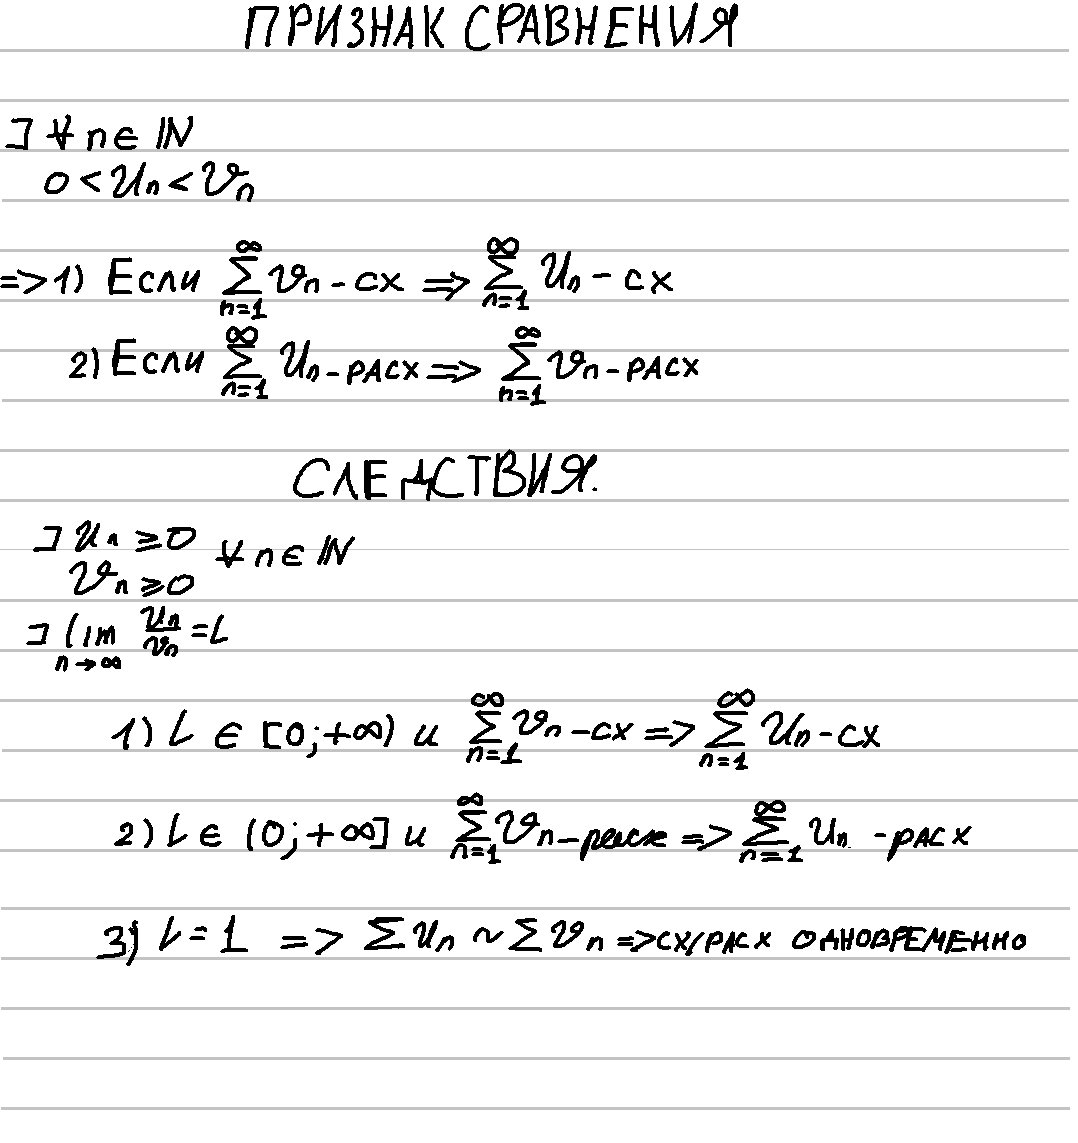 ПРИЗНАК СРАВНЕНИЯ
⅃ ∀ n ∈ ℕ
0 < Uₙ < 𝒱ₙ
=> 1) Если ∑_{n=1}^{∞} 𝒱ₙ - сх => ∑_{n=1}^{∞} Uₙ - сх
2) Если ∑_{n=1}^{∞} Uₙ - расх => ∑_{n=1}^{∞} 𝒱ₙ - расх
СЛЕДСТВИЯ.
⅃ Uₙ ⩾ 0 ∀ n ∈ ℕ
𝒱ₙ ⩾ 0
⅃ lim_{n→∞} Uₙ/𝒱ₙ = L
1) L ∈ [0; +∞) и ∑_{n=1}^{∞} 𝒱ₙ - сх => ∑_{n=1}^{∞} Uₙ - сх
2) L ∈ (0; +∞] и ∑_{n=1}^{∞} 𝒱ₙ - расх => ∑_{n=1}^{∞} Uₙ - расх
3) L = 1 => ∑ Uₙ ~ ∑ 𝒱ₙ => сх/расх ОДНОВРЕМЕННО